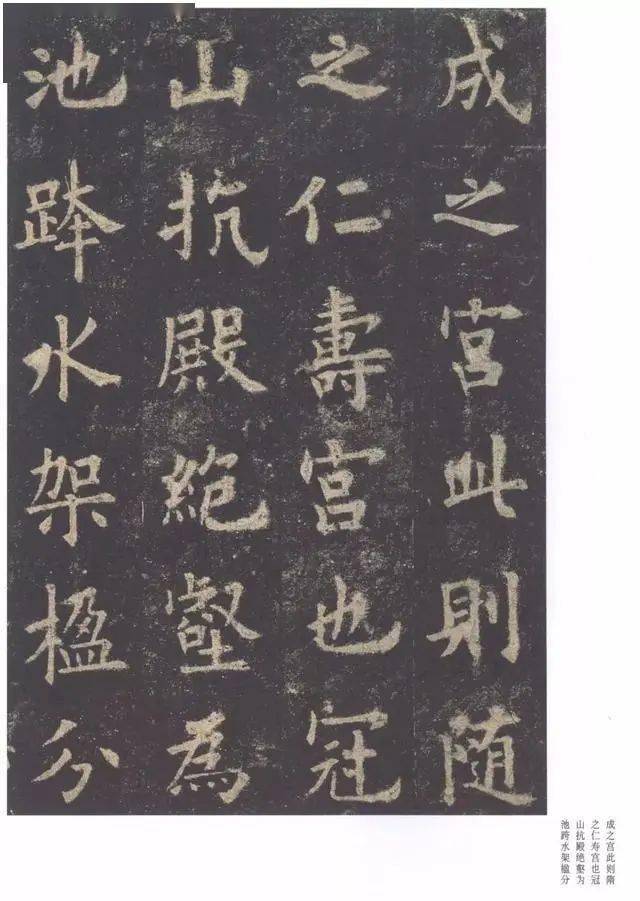 成之宮此則随
之仁壽宮也冠
山抗殿絶壑為
池跨水架楹分
成之宫此则隋
之仁寿宫也冠
山抗殿绝壑为
池跨水架楹分